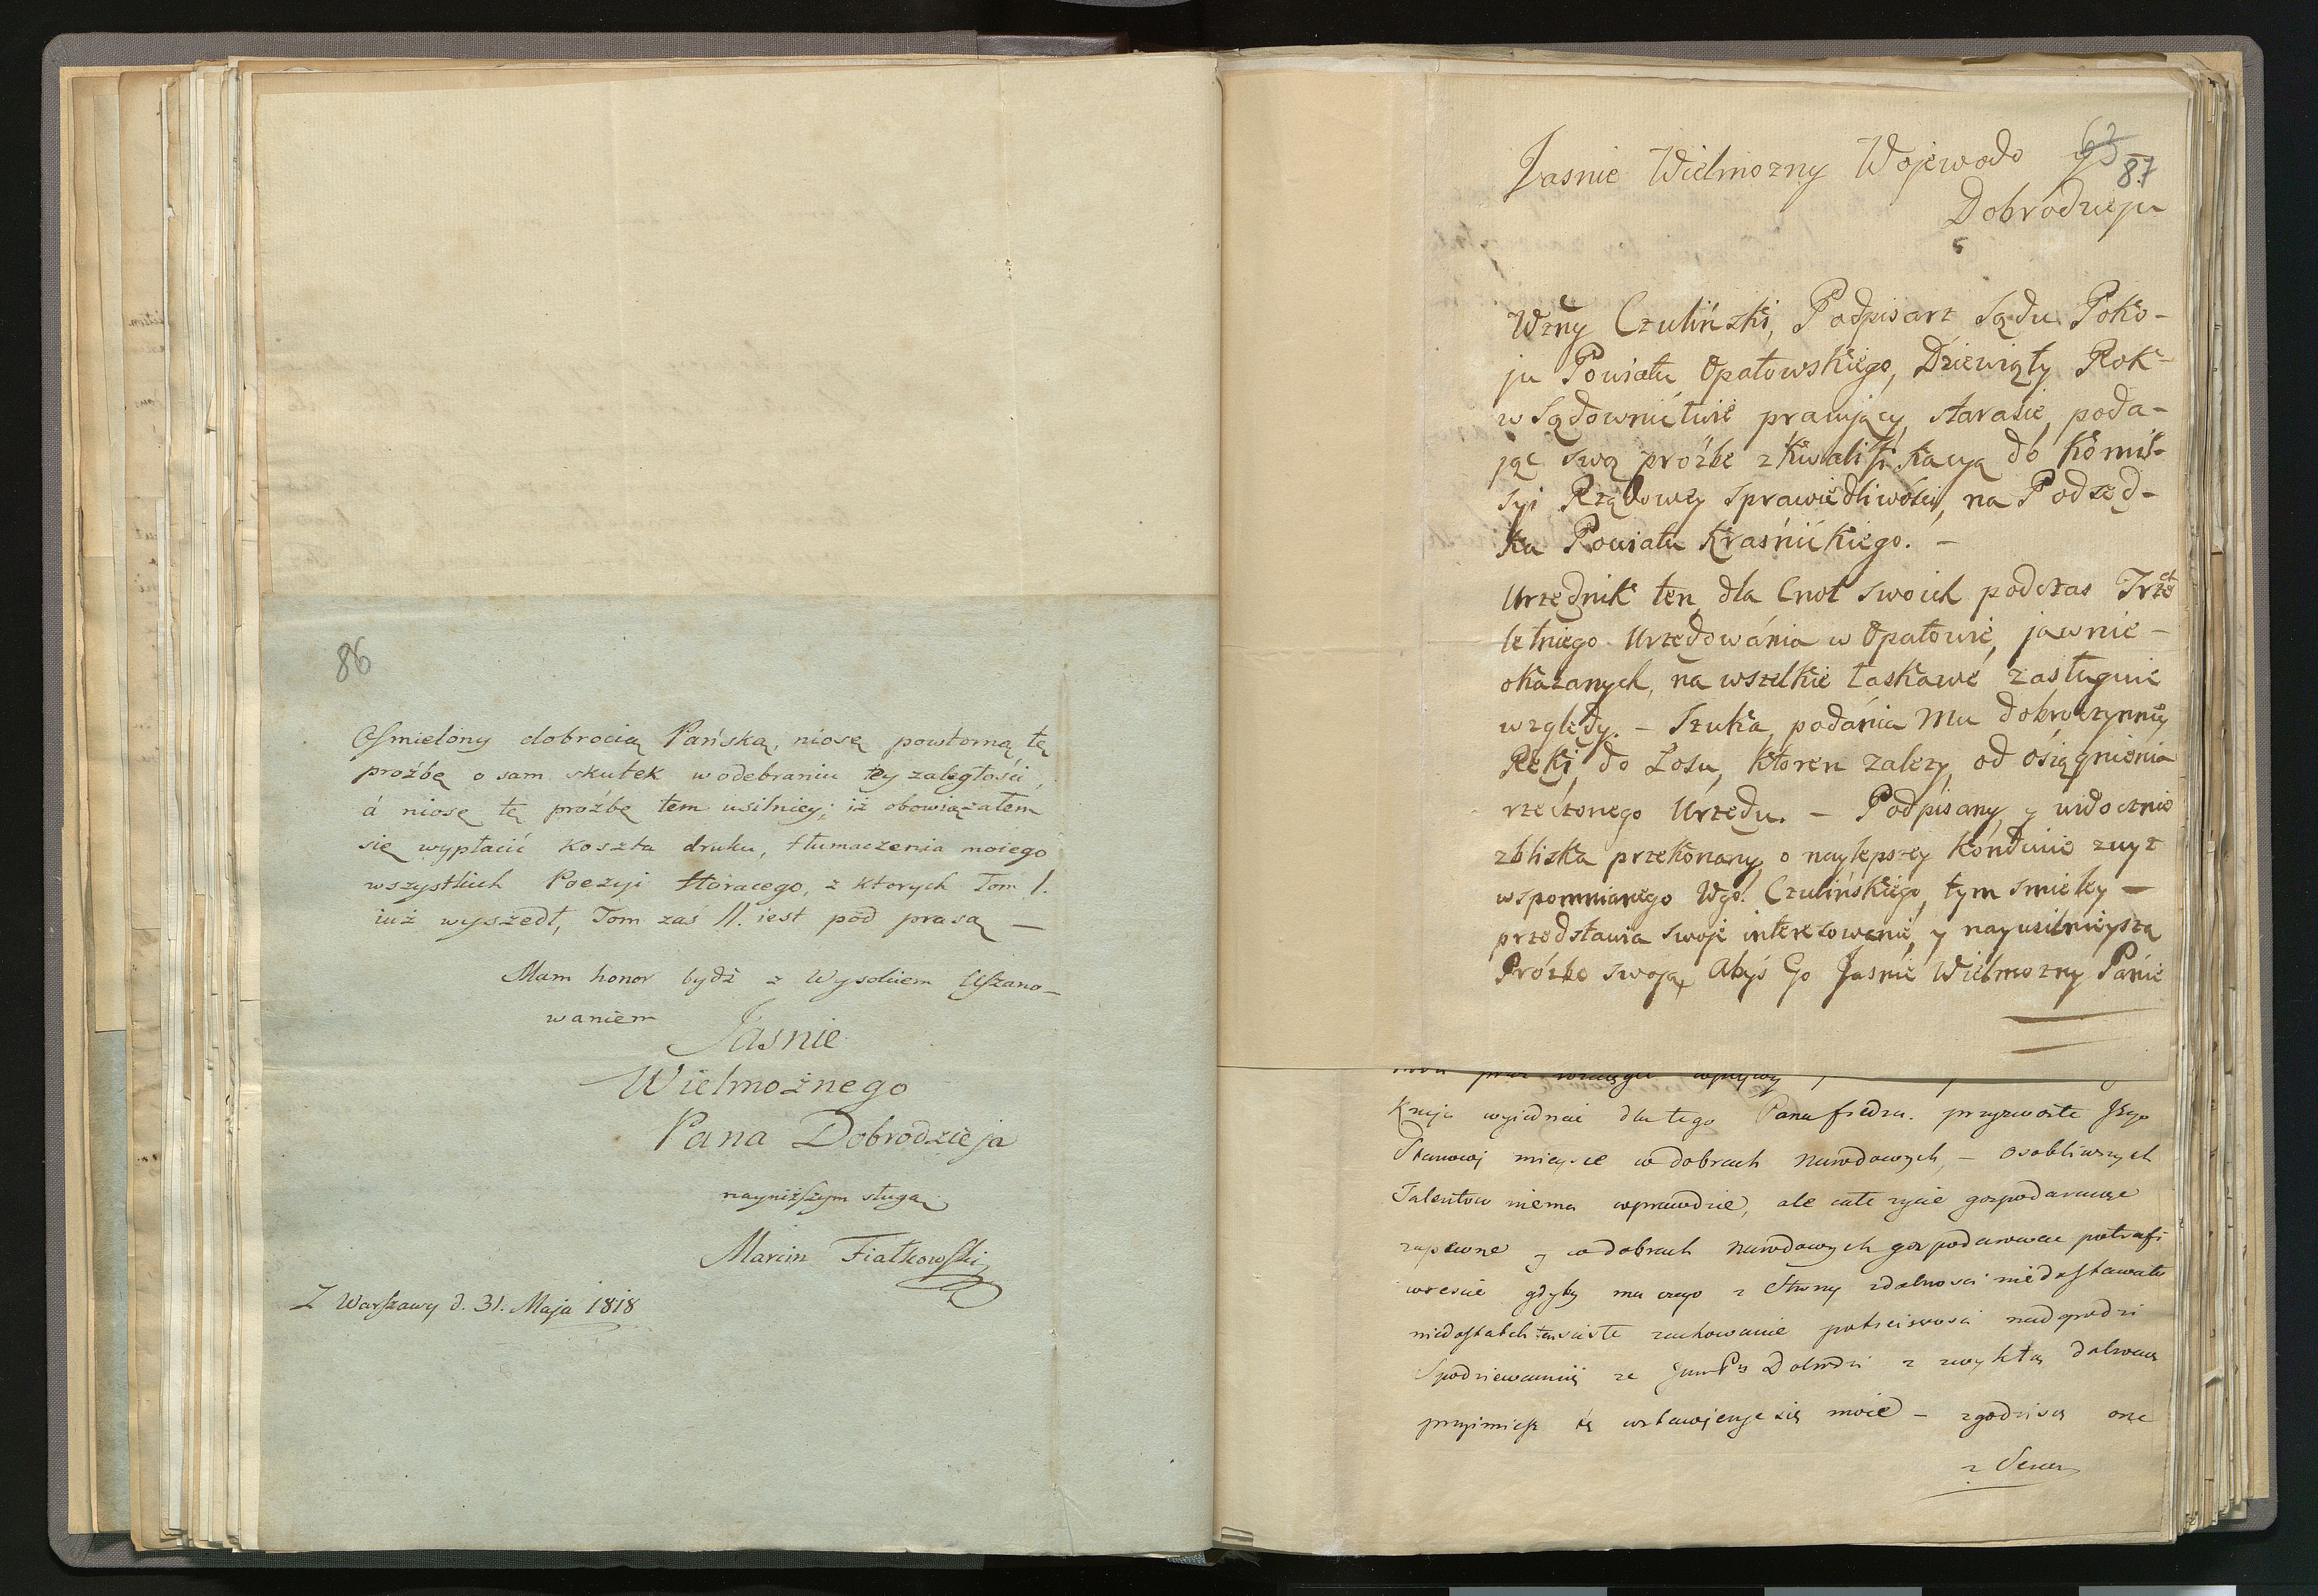 86
Osmielony dobrocią Pańską, niosę powtorną tę
proźbę o sam skutek w odebraniu tey zaległości,
á niosę tę proźbę tem usilniey; iż obowiązałem
się wypłacić koszta druku, tłumaczenia moiego
wszystkich Poezyi Horacego, z ktorych Tom I.
iuż wyszedł, Tom zaś II. iest pod prasą —
Mam honor bydź z Wysokiem Uszano-
waniem
Jasnie
Wielmożnego
Pana Dobrodzieja
nayniższym sługą
Marcin Fiałkowski
Z Warszawy d. 31. Maja 1818
Jasnie Wielmozny Wojewodo
87
Dobrodzieju
Wzny Czuliński, Podpisarz Sądu Poko-
ju Powiatu Opatowskiego, Dziewiąty Rok
w Sądownictwie pracujący, starasie, poda-
jąc swą prózbe z kwalifikacyą do Kommis-
syi Rządowey Sprawiedliwosci, na Podsęd-
ka Powiatu Kraśnickiego. —
Urzędnik ten, dla Cnot swoich podczas Trzech
letniego Urzędowánia w Opatowie, jawnie —
okazanych, na wszelkie łaskawe zasługuie
względy. — Szuka, podánia Mu dobroczynney
Ręki, do Losu, ktoren zalezy, od osiągnienia
rzeczonego Urzędu. — Podpisany, y widocznie
zbliska przekonany, o naylepszey Kondwicie zwyz
wspomnianego Wgo. Czulińskiego, tym smieley —
przedstawia swoje interesowanie, y nayusilnieyszą
Prózbe swoją, Abyś Go Jasnie Wielmozny Panie
Kraju wyiednać dla tego Pana Fredra. przyzwoite Jego
Stanowi mieysce w dobrach Narodowych, — osobliwszych
Talentow niema wprawdzie, ale całe zycie gospodarując
zapewne y w dobrach Narodowych gospodarować potrafi
wresicie gdyby mu czego z Strony zdolnosci niedostawało
niedostatek ten scisłe zachowanie poczciwosci nadgrodzi
Spodziewamsię ze Dobrodzi z zwykłą dobrocią
przyimiesz tę wstawienie się moie — zgodzisz one
z Serca